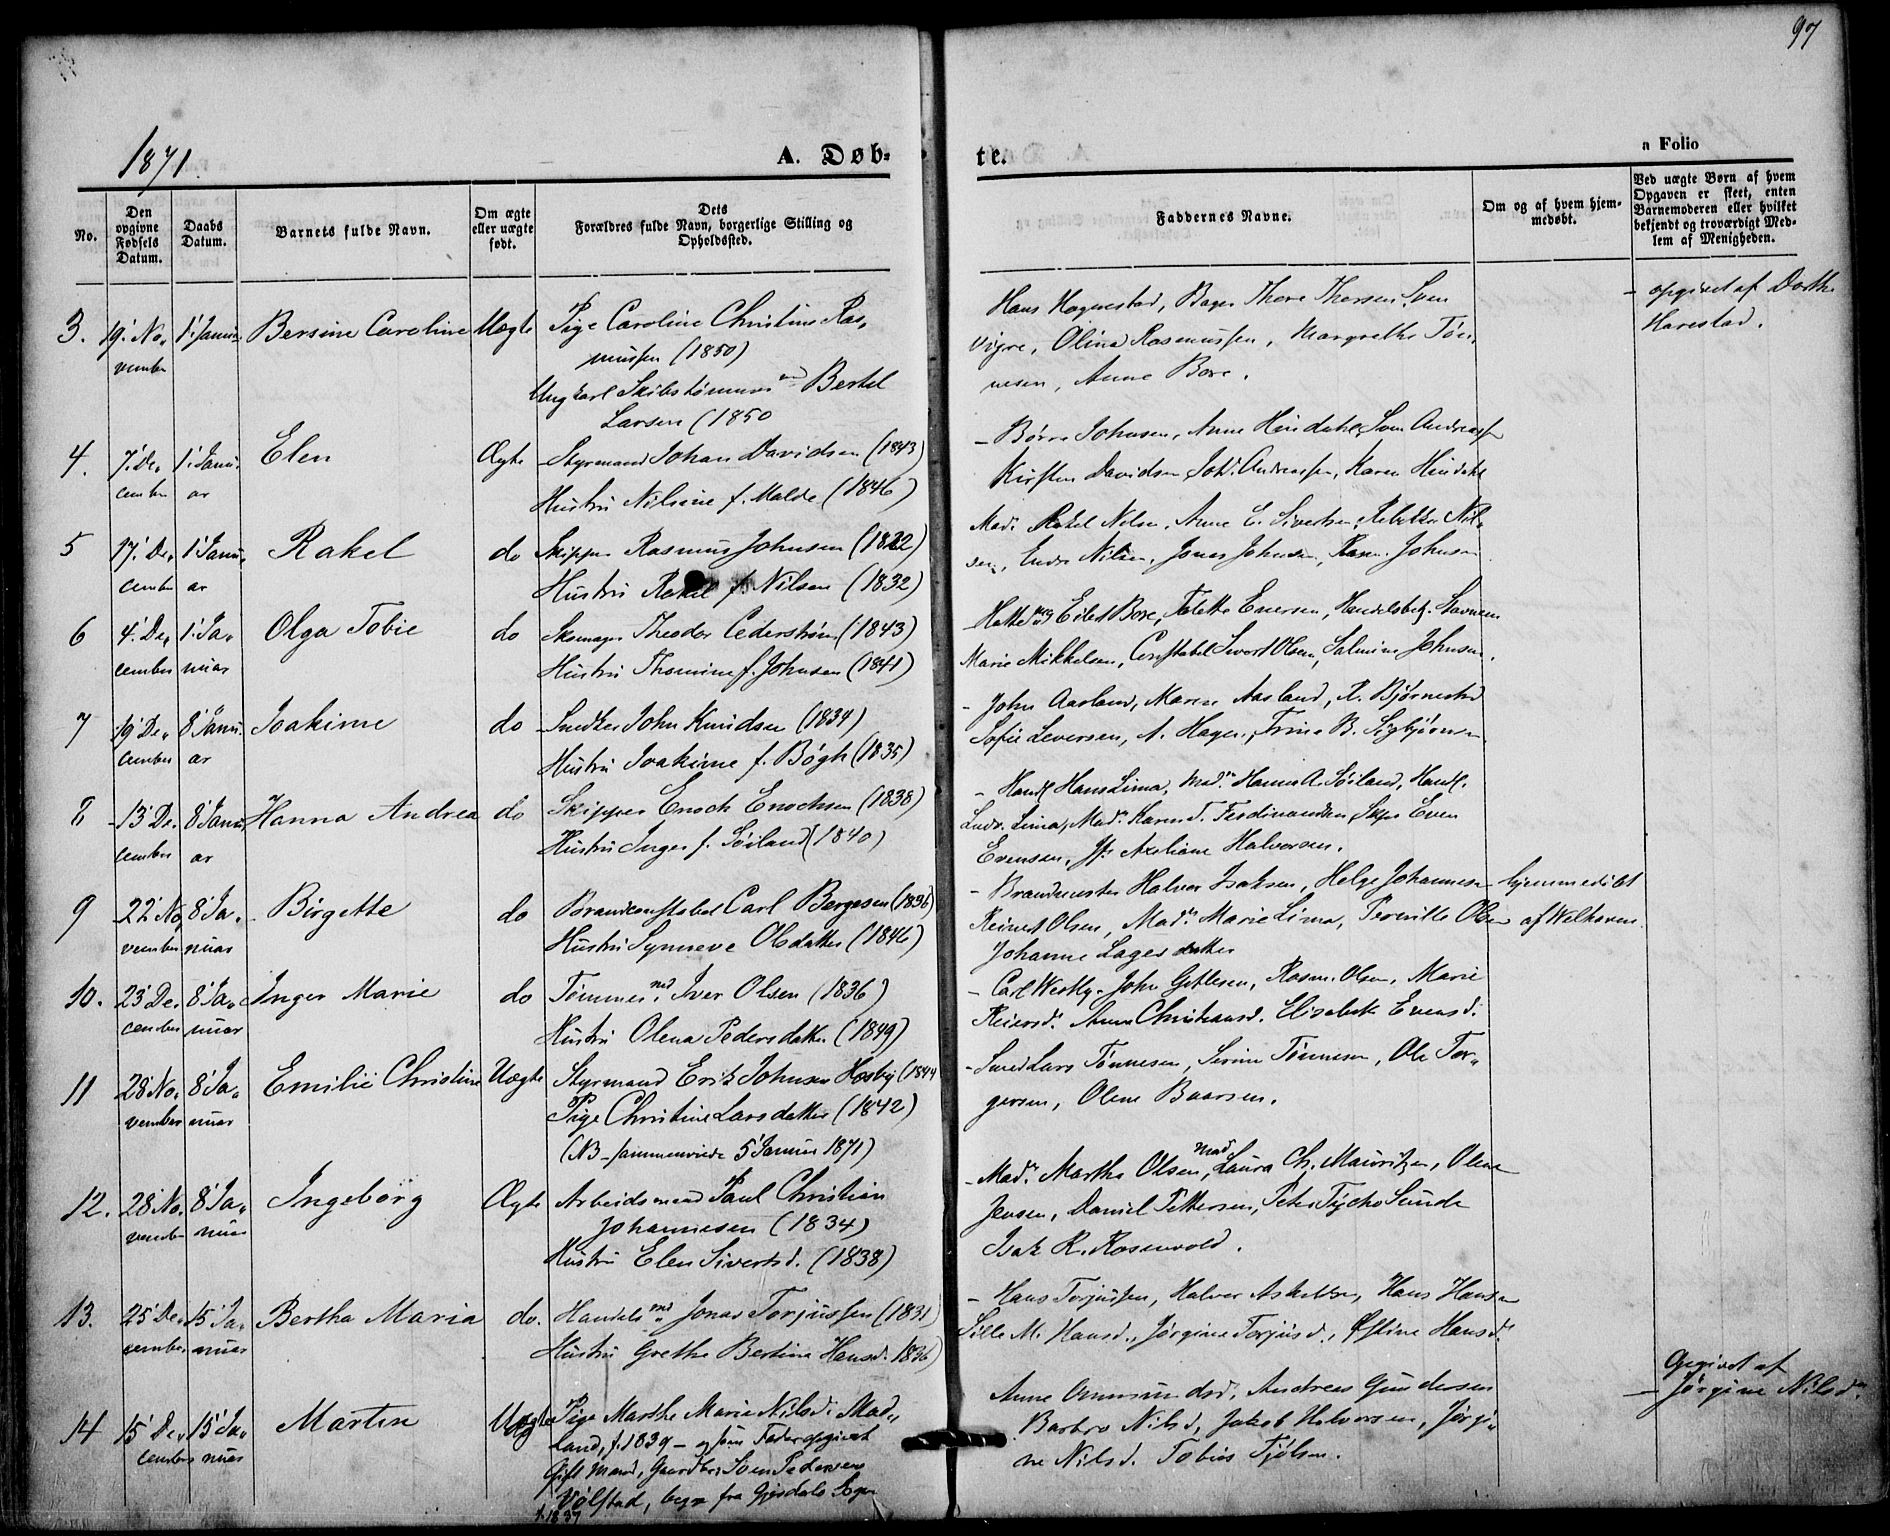 97
1871.
A. Døb-
te.
a Folio
No.
Den opgivne Fødsels Datum.
Daabs Datum.
Barnets fulde Navn.
Om ægte eller uægte født.
Dets
Forældres fulde Navn, borgerlige Stilling og
Opholdssted.
Faddernes Navne.
Om og af hvem hjem-
medøbt.
Ved uægte Børn af hvem
Opgaven er skeet, enten
Barnemoderen eller hvilket
bekjendt og troværdigt Med-
lem af Menigheden.
3. 19' No- 1' Januar Bersine Caroline Uægte Pige Caroline Christine Ras-
vember mussen (1850)
Ungkarl Skibstømmermd Bertel
Larsen (1850
Hans Hognestad, Bager Thore Thorsen, Sven
Vigre, Olina Rasmussen, Margrethe Tøn-
nesen, Anne Bore.
- opgivet af Dorthe
Harestad.
4. 7' De- 1' Janu- Elen Ægte Styrmand Johan Davidsen (1843)
cember ar Hustru Nilsine f. Malde (1846)
- Børre Johnsen, Anne Hindahl, Sven Andreass
Kirsten Davidsen, Joh. Andreassen, Karen Hindahl
5 17' De- 1' Janu- Rakel do Skipper Rasmus Johnsen (1822)
cember ar Hustru Rakel f. Nilsen (1832)
Mad. Rakel Nilsen, Anne E. Sivertsen, Rebekka Nil-
sen, Endre Nilsen, Jonas Johnsen, Rasm. Johnsen
6 4' De- 1' Ja- Olga Tobie do Skomager Theodor Cederstrøm (1843)
cember nuar Hustru Thomine f. Johnsen (1841)
Hattemag Eilert Bore, Tolette Evensen, Handelsbetj. Stavnem
Marie Mikkelsen, Constabel Sivert Olsen, Salmine Johnsen.
7 19' De- 8' Janu- Joakime do Snedker John Knudsen (1834)
cember ar Hustru Joakime f. Bøgh (1835)
- John Aarland, Maren Aasland, R. Bjørnestad
Sofie Leversen, A. Hagen, Trine B. Sigbjørnsen
8 13' De- 8' Janu- Hanna Andrea do Skipper Enoch Enochsen (1838)
cember ar Hustru Inger f. Søiland (1840)
- Handl Hans Lima, Mad. Hanna A. Søiland, Handl.
Ludv. Lima, Mad. Karen T. Ferdinandsen, Skpr Even
Evensen, Jfr Axeliane Halvorsen.
9 22' No 8' Ja- Birgette do Brandconstabel Carl Bergesen (1836)
vember nuar Hustru Synneve Olsdatter (1846)
- Brandmester Halvor Isaksen, Helge Johannesen
Reinert Olsen, Mad. Marie Lima, Pernille Olsen
Johanne Lagesdatter
hjemmedøbt
af Welhaven.
10. 23' De- 8' Ja- Inger Marie do Tømmermd Iver Olsen (1836)
cember nuar Hustru Olena Pedersdatter (1849)
- Carl Westly, John Gitlesen, Rasm. Olsen, Marie
Reiersd. Anna Christiansd. Elisabeth Evensd.
11 28' No- 8' Ja- Emilie Christine Uægte Styrmand Erik Johnsen Hosby (1844
vember nuar Pige Christine Larsdatter (1842)
(NB - sammenviede 5' Januar 1871)
- Smed Lars Tønnesen, Serine Tønnesen, Ole Tor-
gersen, Olene Baarsen.
12. 28' No- 8' Ja- Ingeborg Ægte Arbeidsmand Paul Christian
vember nuar Johannesen (1834)
Hustru Elen Sivertsd. (1838)
- Mad. Martha Olsen, Mad Laura Ch. Mauritzen, Olena
Jensen, Daniel Pettersen, Peter Tycho Sunde
Isak R. Rosenvold.
13. 25' De- 15' Ja- Bertha Maria do. Handelsmd Jonas Torjussen (1831)
cember nuar Hustru Grethe Bertine Hansd. 1836)
- Hans Torjussen, Halvor Askildsen, Hans Hansen
Sille M. Hansd., Jørgine Torjusd., Østine Hansd.
14 15' De- 15' Ja- Martin Uægte Pige Marthe Marie Nilsd. Mad-
cember nuar land, f. 1839 - og som Fader opgivet
Gift Mand, Gaardbr. Sven Pedersen
Vølstad, begge fra Gjesdals Sogn
f. 1837
Anne Ommundsd, Andreas Gundersen
Barbro Nilsd, Jakob Halvorsen, Jørgi-
ne Nilsd. Tobias Tjølsen.
Opgivet af
- Jørgine Nilsd.